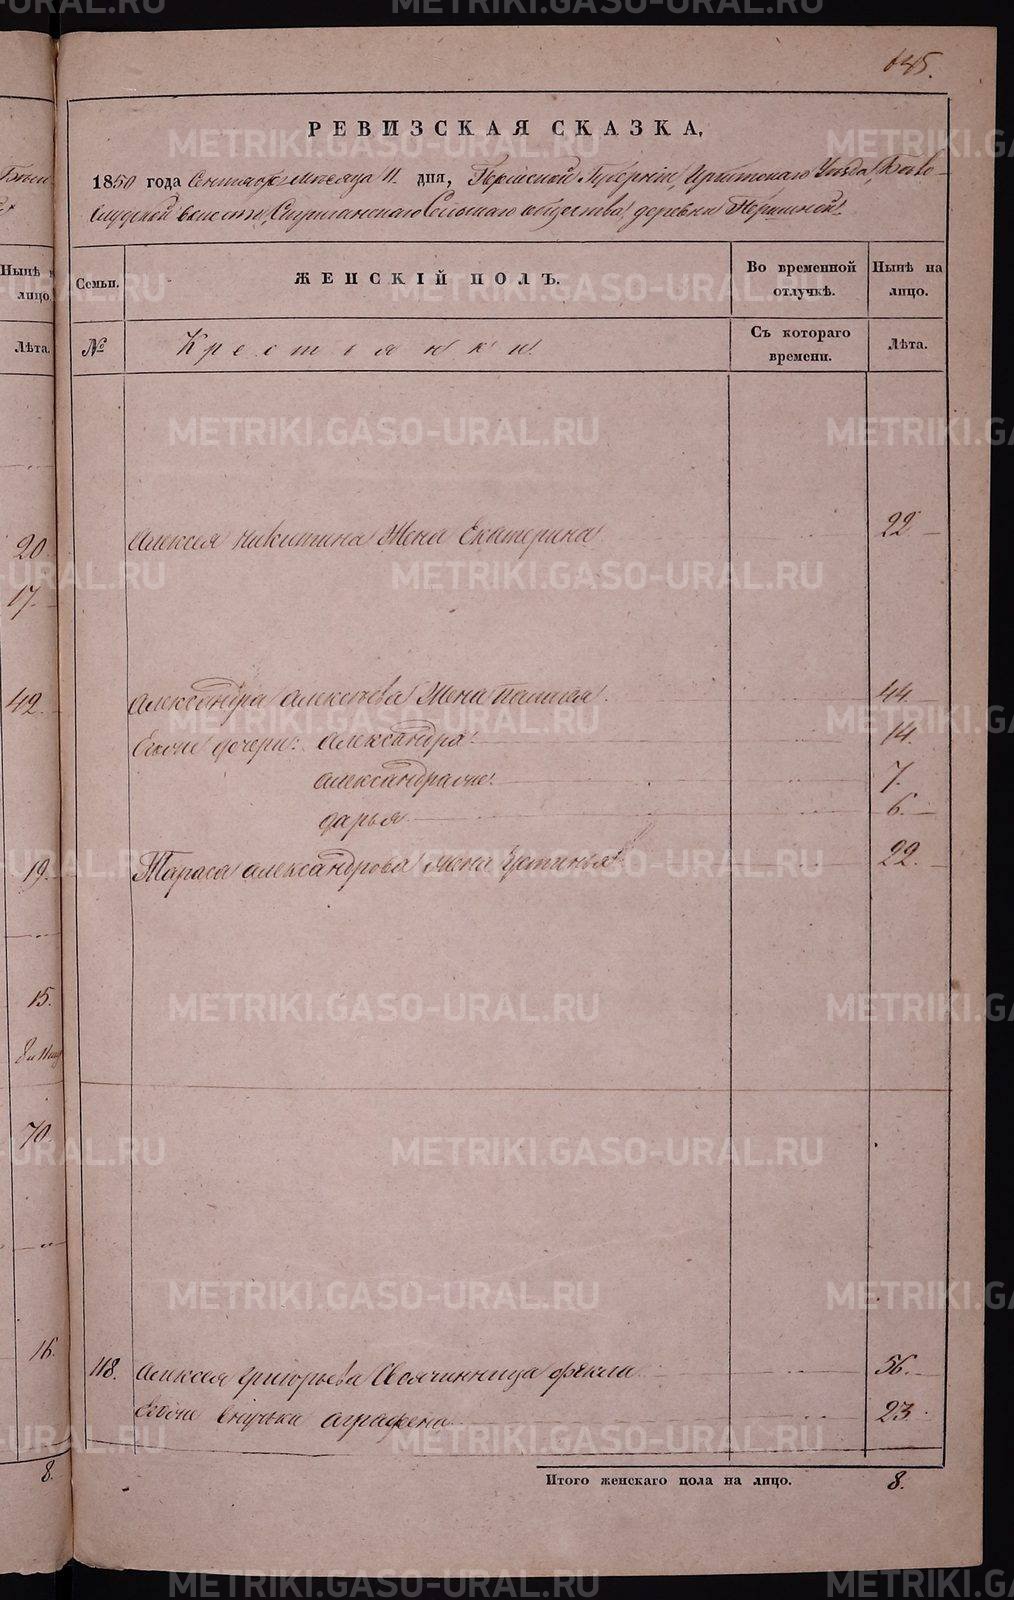 645.
РЕВИЗСКАЯ СКАЗКА,
1850 года Сентября месяца 11 дня, Пермской Губерніи, Ирбитскаго Уѣзда, Бѣло-
слудской волости, Скутинскаго Сельскаго общества, деревни Першиной
Семьи.
ЖЕНСКІЙ ПОЛЪ.
Во временной отлучкѣ.
Нынѣ на лицо.
№
Крестьянки
Съ котораго времени.
Лѣта.
Алексея Никитина Жена Екатерина 22
Александра Алексѣева Жена Палагая 44
Егоже дочери: Александра 14.
Александра же 7.
Дарья 6.
Тараса Александрова жена Устинья 22.
118. Алексея Григорьева Своячинница Фёкла 56.
Егоже внучька Аграфена 23.
Итого женскаго пола на лицо. 8.
Нынѣ
лицо.
Лѣта.
20.
17.
42.
19.
15.
70.
16.
8.
METRIKI.GASO-URAL.RU